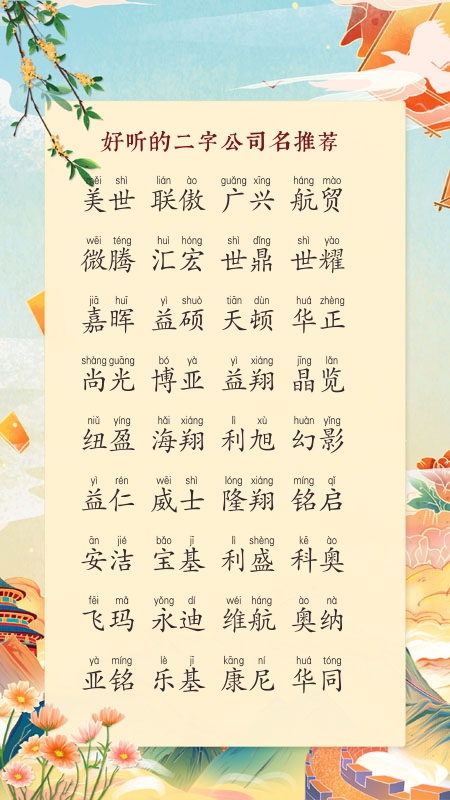 好听的二字公司名推荐
měi shì lián ào guǎng xīng háng mào
美世 联傲 广兴 航贸
wēi téng huì hóng shì dǐng shì yào
微腾 汇宏 世鼎 世耀
jiā huī yì shuò tiān dùn huá zhèng
嘉晖 益硕 天顿 华正
shàng guāng bó yà yì xiáng jīng lǎn
尚光 博亚 益翔 晶览
niǔ yíng hǎi xiáng lì xù huàn yǐng
纽盈 海翔 利旭 幻影
yì rén wēi shì lóng xiáng míng qǐ
益仁 威士 隆翔 铭启
ān jié bǎo jī lì shèng kē ào
安洁 宝基 利盛 科奥
fēi mǎ yǒng dí wéi háng ào nà
飞玛 永迪 维航 奥纳
yà míng lè jī kāng ní huá tóng
亚铭 乐基 康尼 华同